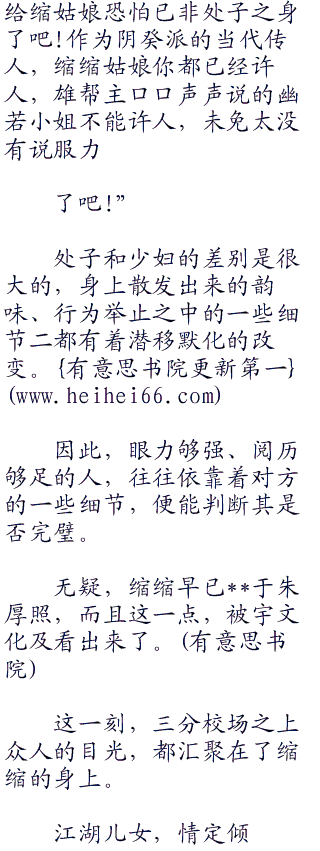 给缩姑娘恐怕已非处子之身
了吧!作为阴癸派的当代传
人，缩缩姑娘你都已经许
人，雄帮主口口声声说的幽
若小姐不能许人，未免太没
有说服力
了吧!”
处子和少妇的差别是很
大的，身上散发出来的韵
味、行为举止之中的一些细
节二都有着潜移默化的改
变。{有意思书院更新第一}
(www.heihei66.com)
因此，眼力够强、阅历
够足的人，往往依靠着对方
的一些细节，便能判断其是
否完璧。
无疑，缩缩早已**于朱
厚照，而且这一点，被宇文
化及看出来了。(有意思书
院)
这一刻，三分校场之上
众人的目光，都汇聚在了缩
缩的身上。
江湖儿女，情定倾